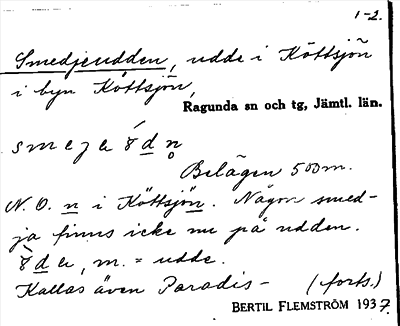 1-2.
Smedjeudden, udde i Köttsjön
i byn Köttsjön,
Ragunda sn och tg, Jämtl. län.
Belägen 500 m.
N.O. n i Köttsjön. Någon smed-
ja finns icke nu på udden.
m. = udde.
Kallas även Paradis- (forts.)
BERTIL FLEMSTRÖM 1937.